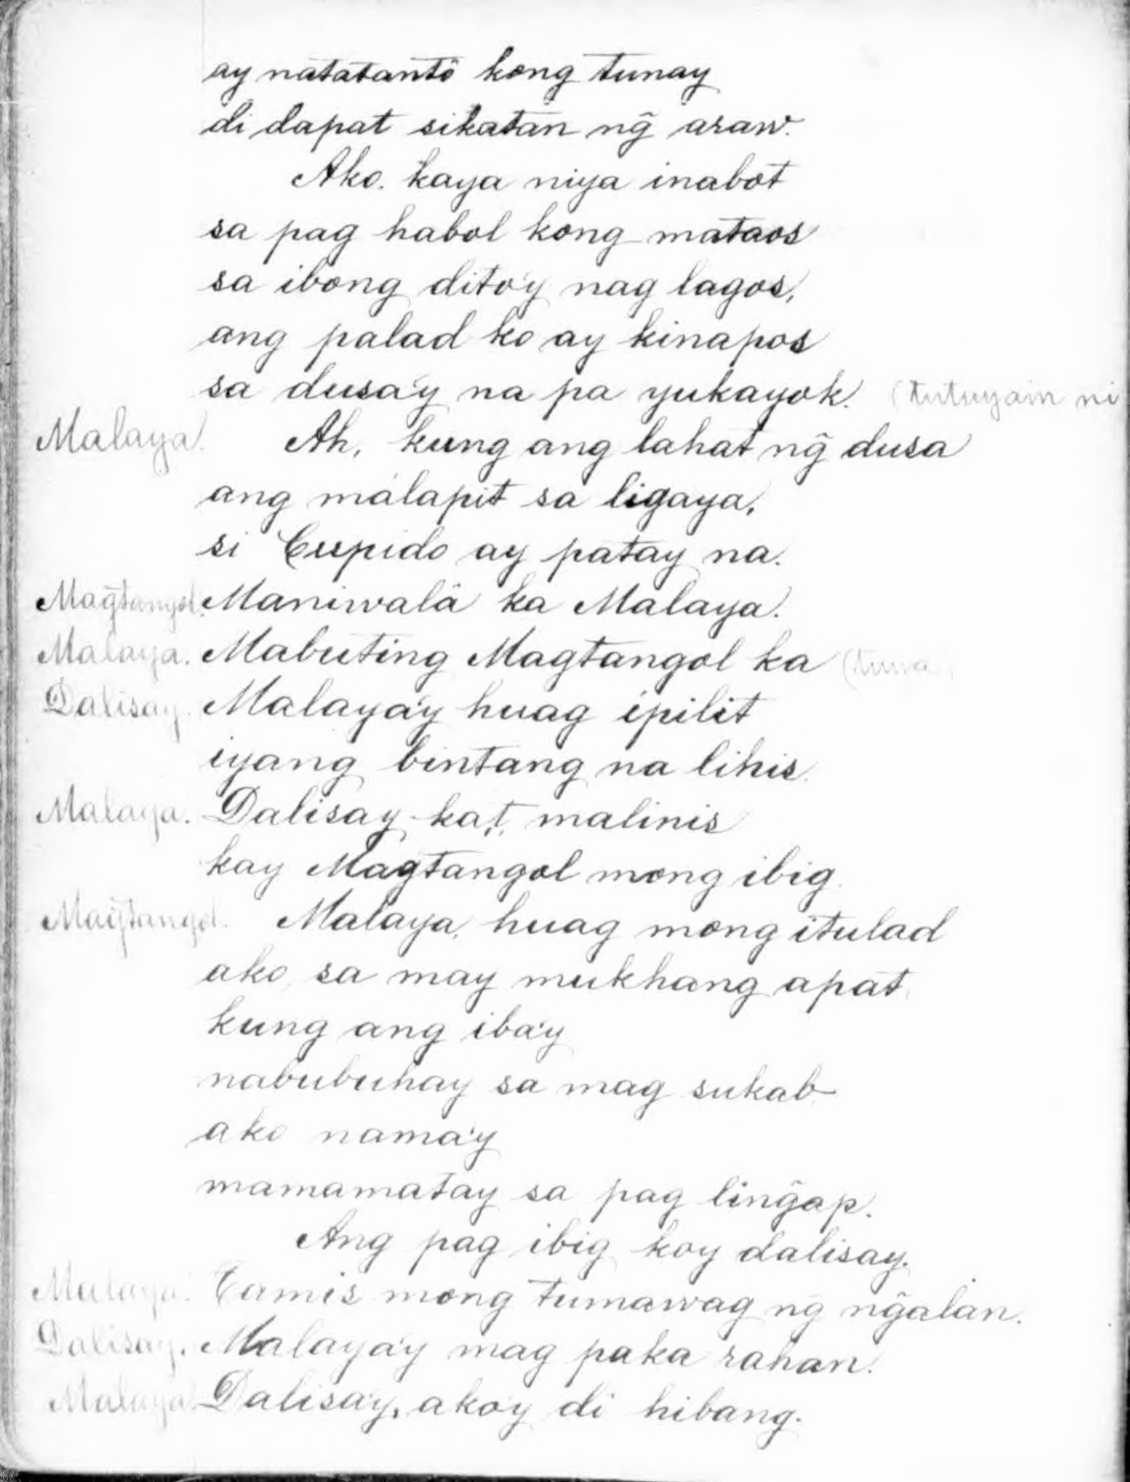 ay natatantô kong tunay
di dapat sikatan ng̃ araw.
Ako. kaya niya inabot
sa pag habol kong mataos
sa ibong dito'y nag lagos,
ang palad ko ay kinapos
sa dusa'y na pa yukayok. (tutuyain ni
Malaya. Ah, kung ang lahat ng̃ dusa
ang málapit sa ligaya,
si Cupido ay patay na.
Magtangol. Maniwalâ ka Malaya.
Malaya. Mabuting Magtangol ka (tuwa
Dalisay. Malaya'y huag ipilit
iyang bintang na lihis.
Malaya. Dalisay ka,t, malinis
kay Magtangol mong ibig.
Magtangol. Malaya, huag mong itulad
ako, sa may mukhang apat,
kung ang iba'y
nabubuhay sa mag sukab
ako nama'y
mamamatay sa pag ling̃ap.
Ang pag ibig koy dalisay.
Malaya. Tamis mong tumawag ng ng̃alan.
Dalisay. Malaya'y mag paka rahan.
Malaya. Dalisa'y, ako'y di hibang.